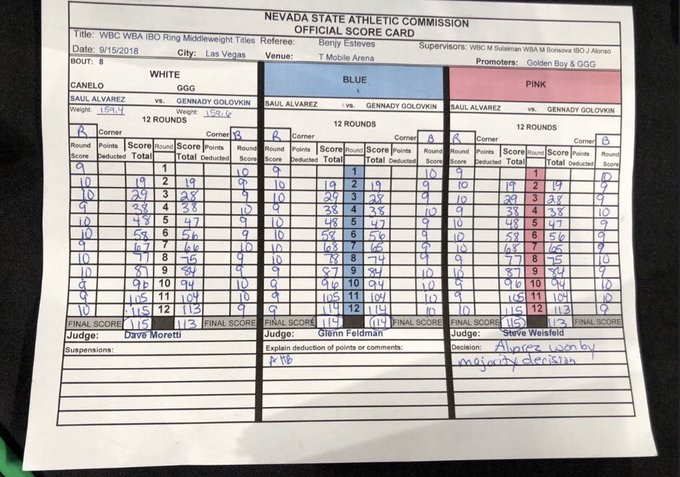 NEVADA STATE ATHLETIC COMMISSION
OFFICIAL SCORE CARD
Title: WBC WBA IBO Ring Middleweight Titles Referee: Benjy Esteves Supervisors: WBC M Sulaiman WBA M Borisova IBO J Alonso
Date: 9/15/2018 City: Las Vegas Venue: T Mobile Arena Promoters: Golden Boy & GGG
BOUT: 8
WHITE BLUE PINK
CANELO GGG
SAUL ALVAREZ vs. GENNADY GOLOVKIN SAUL ALVAREZ vs. GENNADY GOLOVKIN SAUL ALVAREZ vs. GENNADY GOLOVKIN
Weight: 159.4 Weight: 159.6
12 ROUNDS 12 ROUNDS 12 ROUNDS
R Corner Corner B R Corner Corner B R Corner Corner B
Round Points Score Round Score Points Round Round Points Score Round Score Points Round Round Points Score Round Score Points Round
Score Deducted Total Total Deducted Score Score Deducted Total Total Deducted Score Score Deducted Total Total Deducted Score
9 1 10 9 1 10 9 1 10
10 19 2 19 9 10 19 2 19 9 10 19 2 19 9
10 29 3 28 9 10 29 3 28 9 10 29 3 28 9
9 38 4 38 10 9 38 4 38 10 9 38 4 38 10
10 48 5 47 9 10 48 5 47 9 10 48 5 47 9
10 58 6 56 9 10 58 6 56 9 10 58 6 56 9
9 67 7 66 10 10 68 7 65 9 10 68 7 65 9
10 77 8 75 9 10 78 8 74 9 9 77 8 75 10
10 87 9 84 9 9 87 9 84 10 10 87 9 84 9
9 96 10 94 10 9 96 10 94 10 9 96 10 94 10
9 105 11 104 10 9 105 11 104 10 9 105 11 104 10
10 115 12 113 9 9 114 12 114 10 10 115 12 113 9
FINAL SCORE 115 113 FINAL SCORE FINAL SCORE 114 114 FINAL SCORE FINAL SCORE 115 113 FINAL SCORE
Judge: Dave Moretti Judge: Glenn Feldman Judge: Steve Weisfeld
Suspensions: Explain deduction of points or comments: Decision: Alvarez won by
majority decision